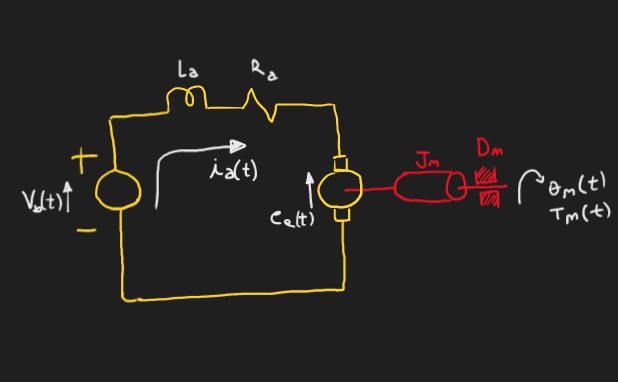 La
Ra
+
ia(t)
Vb(t)
ea(t)
−
Jm
Dm
θm(t)
Tm(t)